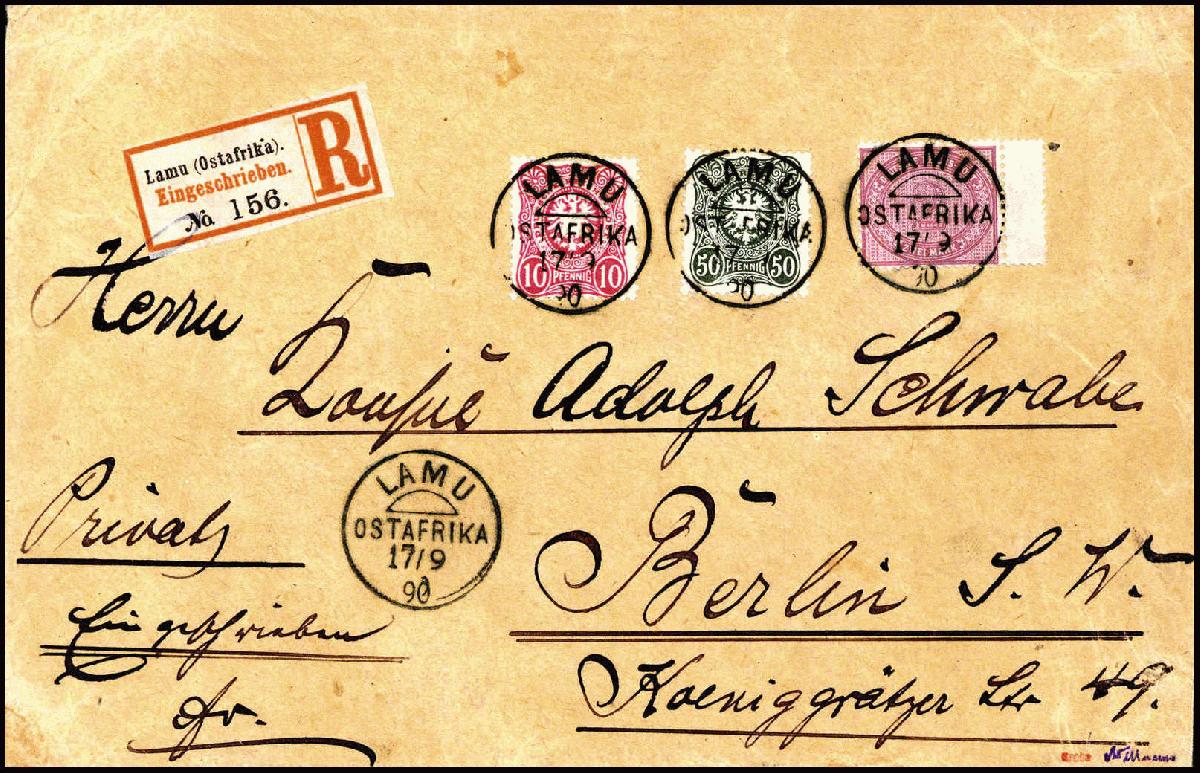 Lamu (Ostafrika).
Eingeschrieben.
No. 156.
R
LAMU
OSTAFRIKA
17/9
90
10 PFENNIG 10
LAMU
OSTAFRIKA
17/9
90
50 PFENNIG 50
LAMU
OSTAFRIKA
17/9
90
Herrn
Adolph Schwabe
LAMU
OSTAFRIKA
17/9
90
Privat
Berlin S. W.
Eingeschrieben
fr.
Koeniggrätzer Str 49.